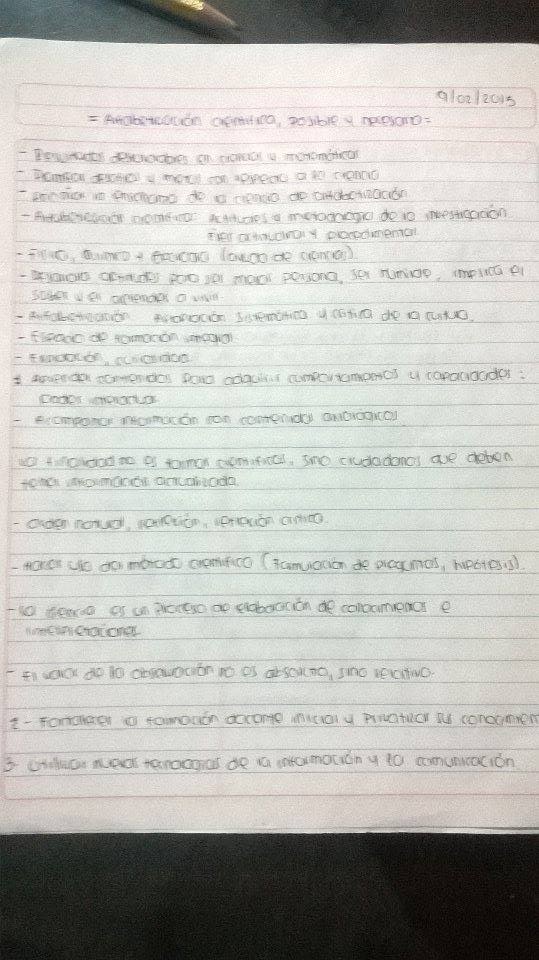 9/02/2015
= Alfabetización científica, posible y necesaria =
- Resultados desfavorables en ciencias y matemáticas
- Planificar y metas con respecto a la ciencia
- de la ciencia de alfabetización
- Alfabetización científica: Actitudes a metodología de la investigación
Fines actitudinal y procedimental
- Físico, Químico y
- Desarrolla actitudes para ser mejor persona, ser humilde, implica el
saber y el aprender a vivir.
- Alfabetización sistemática y crítica de la cultura.
- Espacio de formación integral
- curiosidad
1 Aprender contenidos para adquirir comportamientos y capacidades:
- Acompañar información con contenidos axiológicos
La finalidad no es formar científicos, sino ciudadanos que deben
tener información actualizada.
- Orden natural, reflexión,
- Hacer uso del método científico (Formulación de preguntas, hipótesis).
- La ciencia es un proceso de elaboración de conocimientos e
interpretaciones
- El valor de la observación no es absoluto, sino relativo.
2 - Fortalecer la formación docente inicial y su conocimien
3 - Utilizar nuevas tecnologías de la información y la comunicación